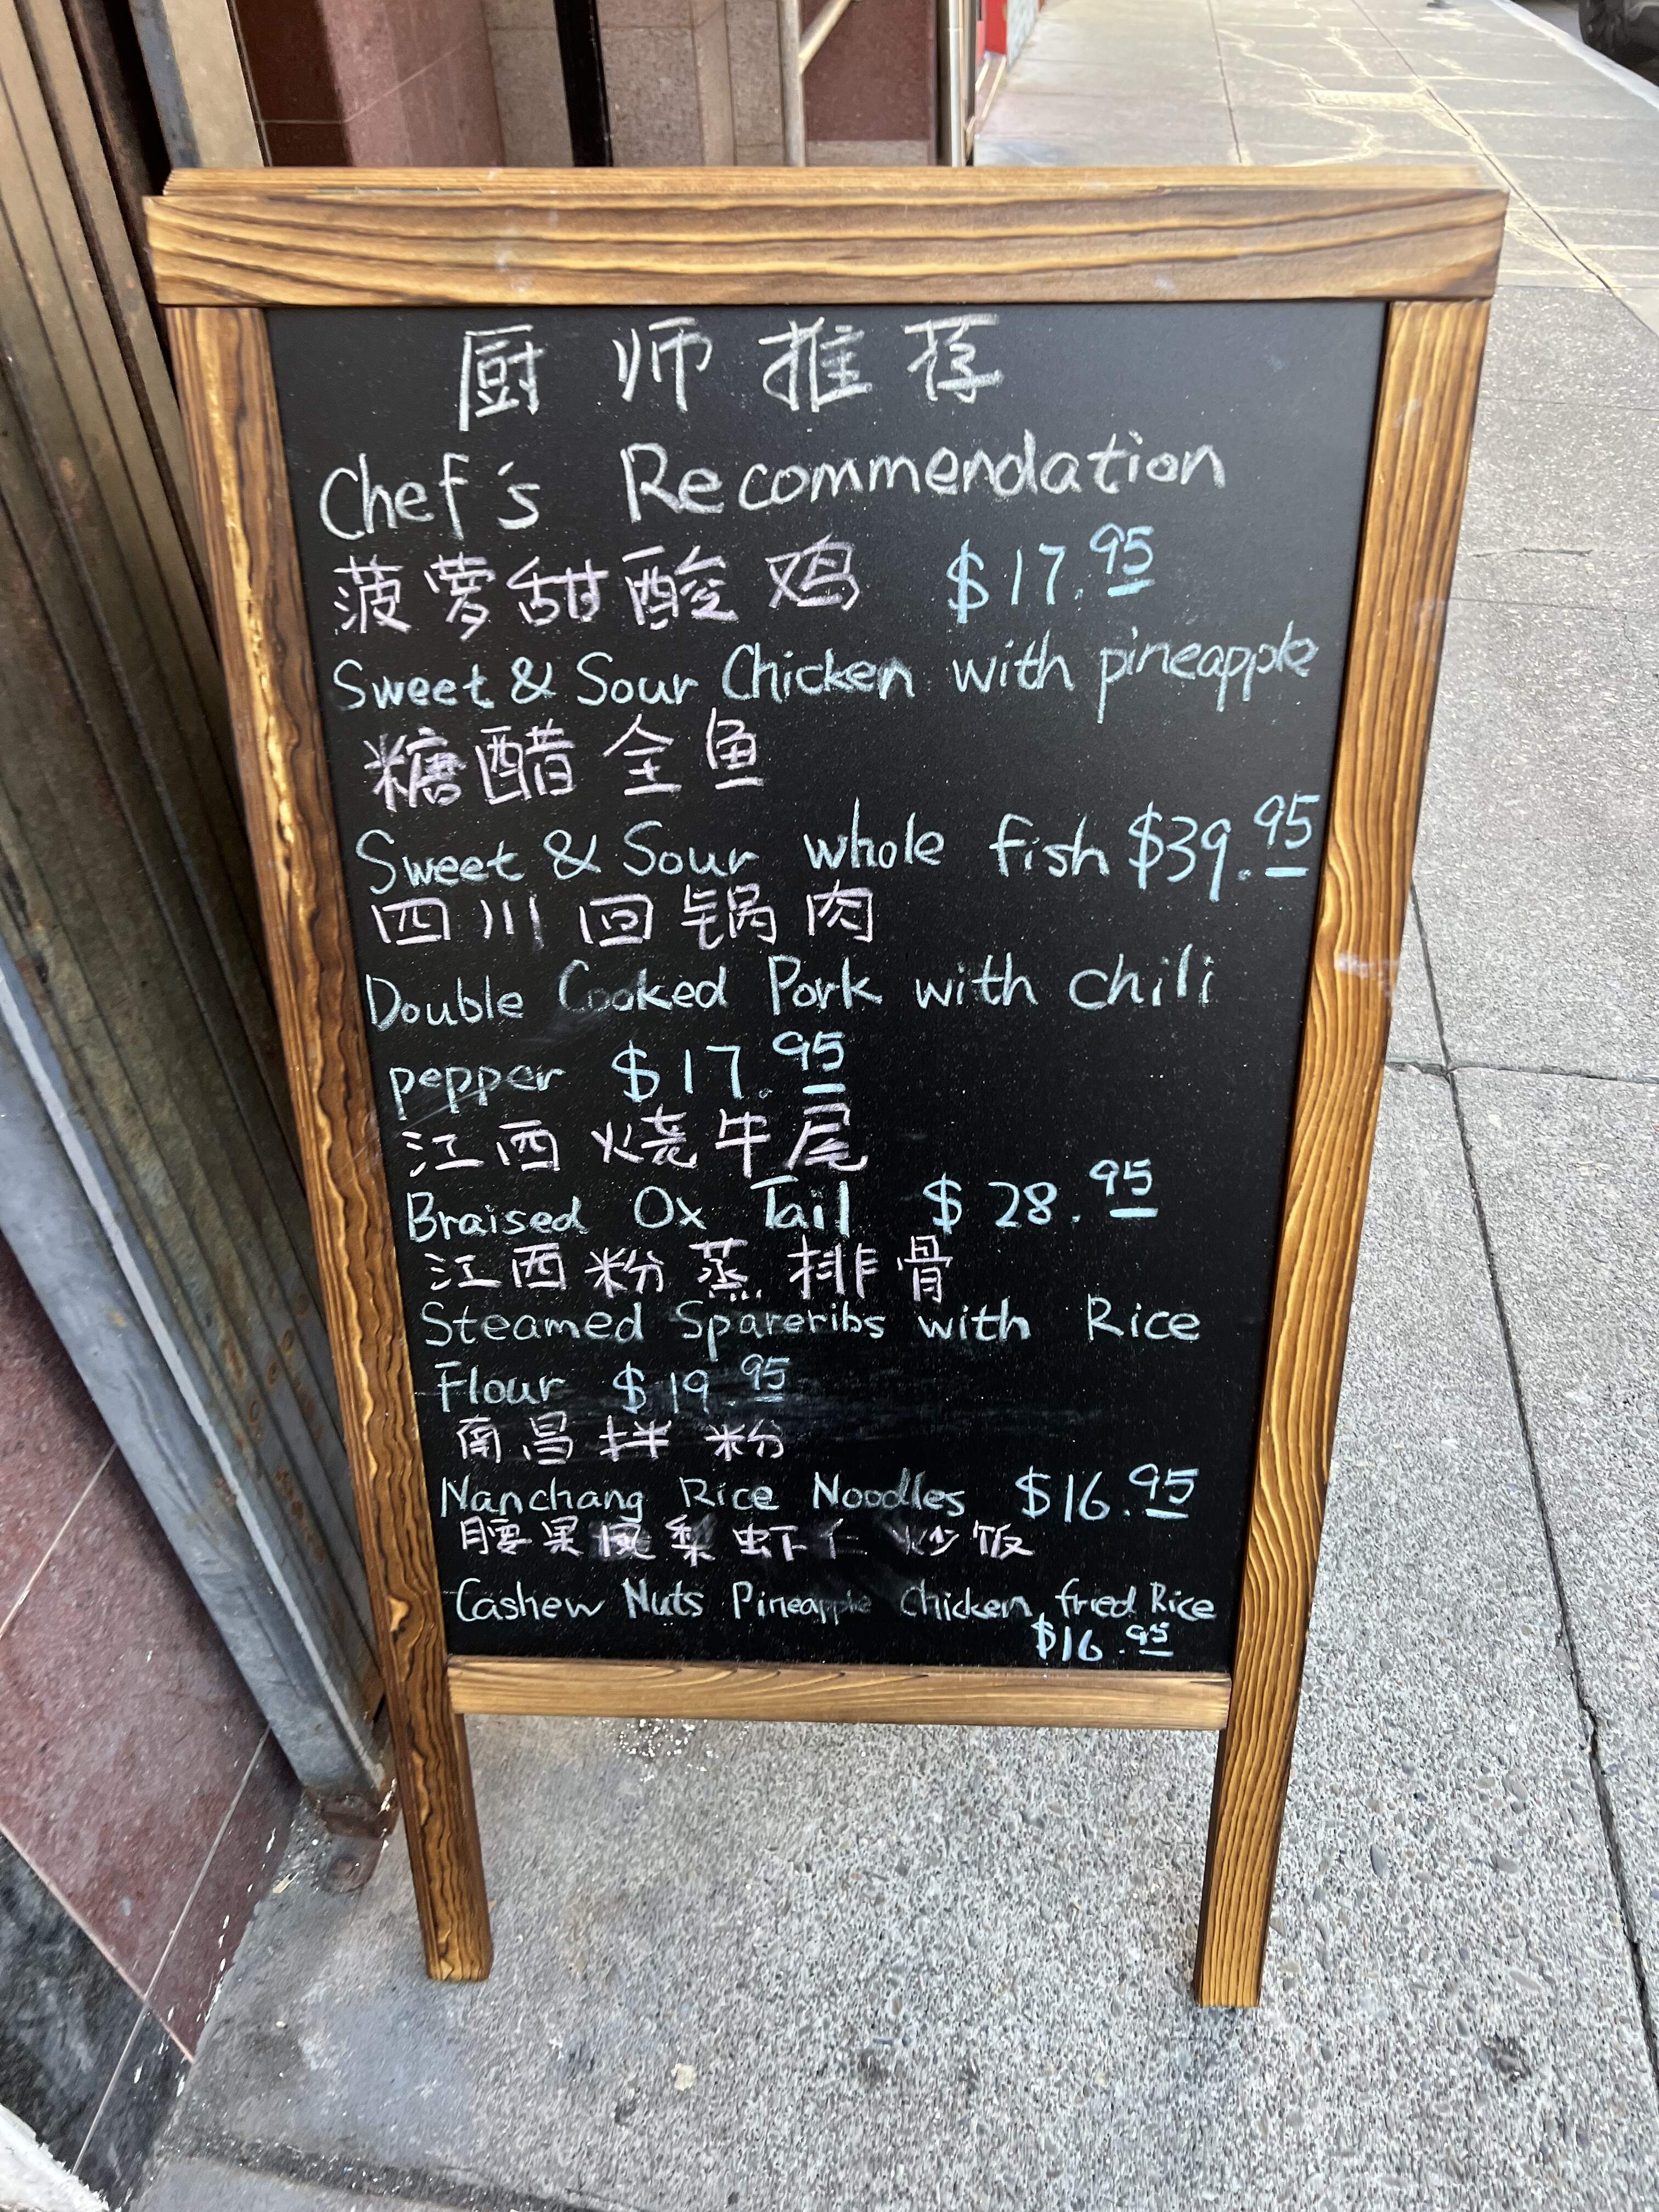 厨师推荐
Chef's Recommendation
菠萝甜酸鸡 $17.95
Sweet & Sour Chicken with pineapple
糖醋全鱼
Sweet & Sour whole fish $39.95
四川回锅肉
Double Cooked Pork with chili
pepper $17.95
江西烧牛尾
Braised Ox Tail $28.95
江西粉蒸排骨
Steamed Spareribs with Rice
Flour $19.95
南昌拌粉
Nanchang Rice Noodles $16.95
腰果凤梨虾仁炒饭
Cashew Nuts Pineapple Chicken fried Rice
$16.95